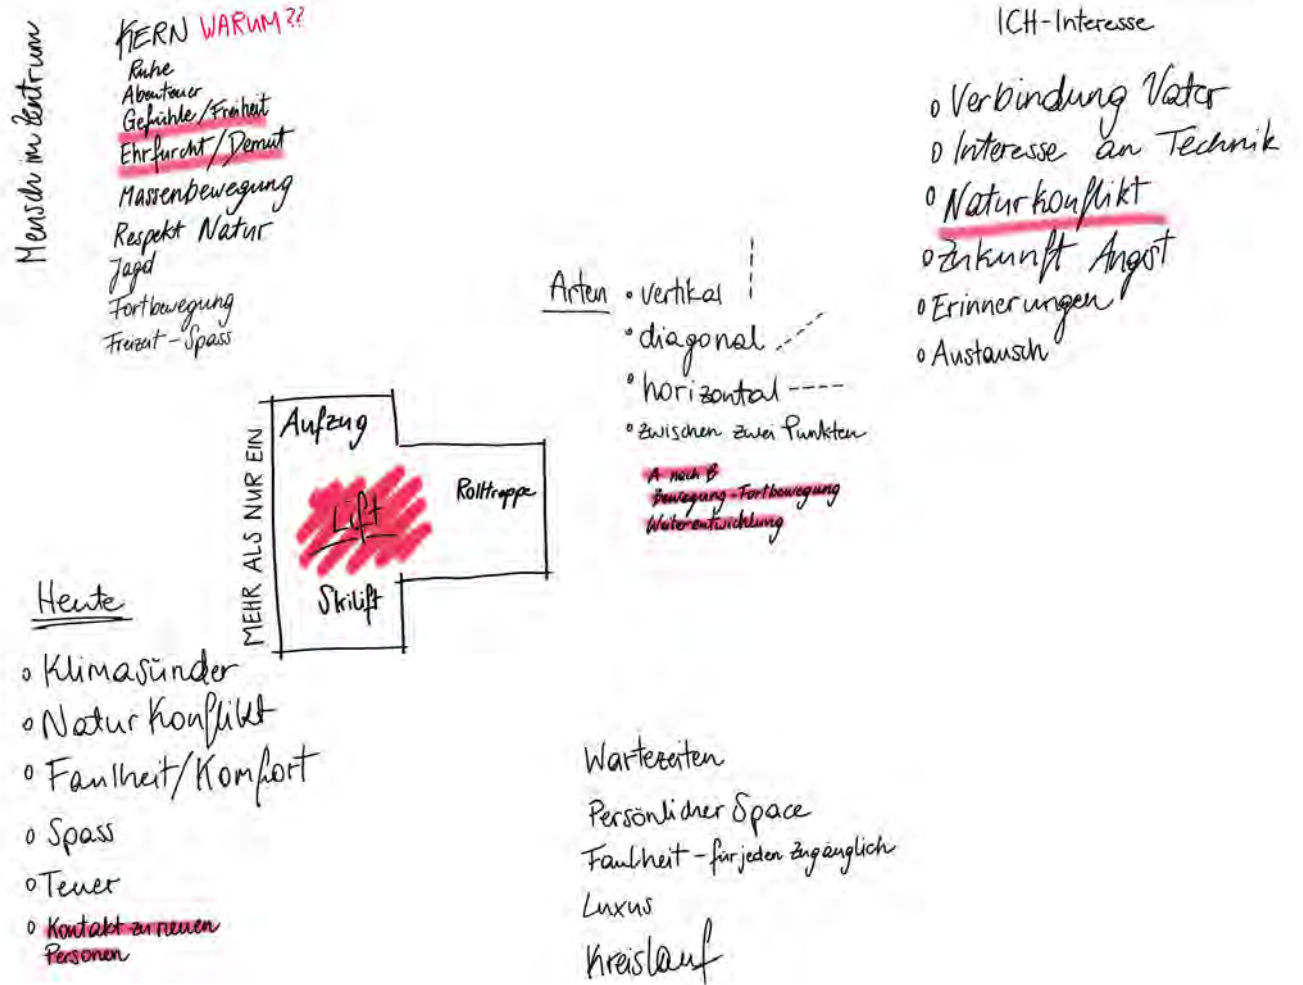 Mensch im Zentrum
KERN WARUM??
Ruhe
Abenteuer
Gefühle/Freiheit
Ehrfurcht/Demut
Massenbewegung
Respekt Natur
Jagd
Fortbewegung
Freizeit-Spass
ICH-Interesse
Verbindung Vater
Interesse an Technik
Naturkonflikt
Zukunft Angst
Erinnerungen
Austausch
Arten
vertikal
diagonal
horizontal
zwischen zwei Punkten
A nach B
Bewegung-Fortbewegung
Weiterentwicklung
MEHR ALS NUR EIN
Aufzug
Lift
Rolltreppe
Skilift
Heute
Klimasünder
Natur Konflikt
Faulheit/Komfort
Spass
Teuer
Kontakt zu neuen
Personen
Wartezeiten
Persönlicher Space
Faulheit - für jeden zugänglich
Luxus
Kreislauf